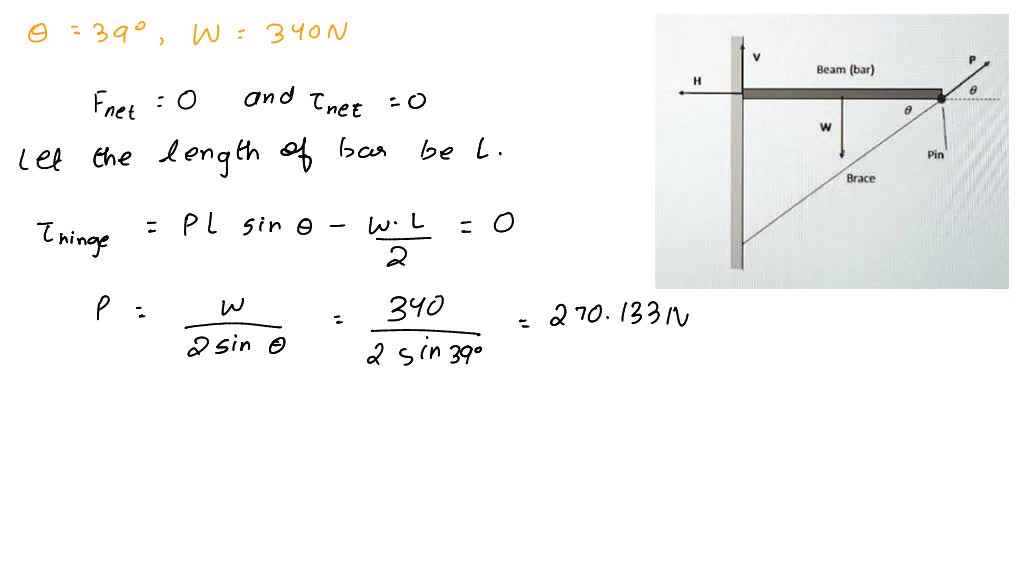 θ = 39°, W = 340N
Fnet = 0 and τnet = 0
Let the length of bar be L.
τhinge = PL sin θ - W·L/2 = 0
P = W/2 sin θ = 340/2 sin 39° = 270.133N
V
H
Beam (bar)
P
θ
θ
W
Pin
Brace